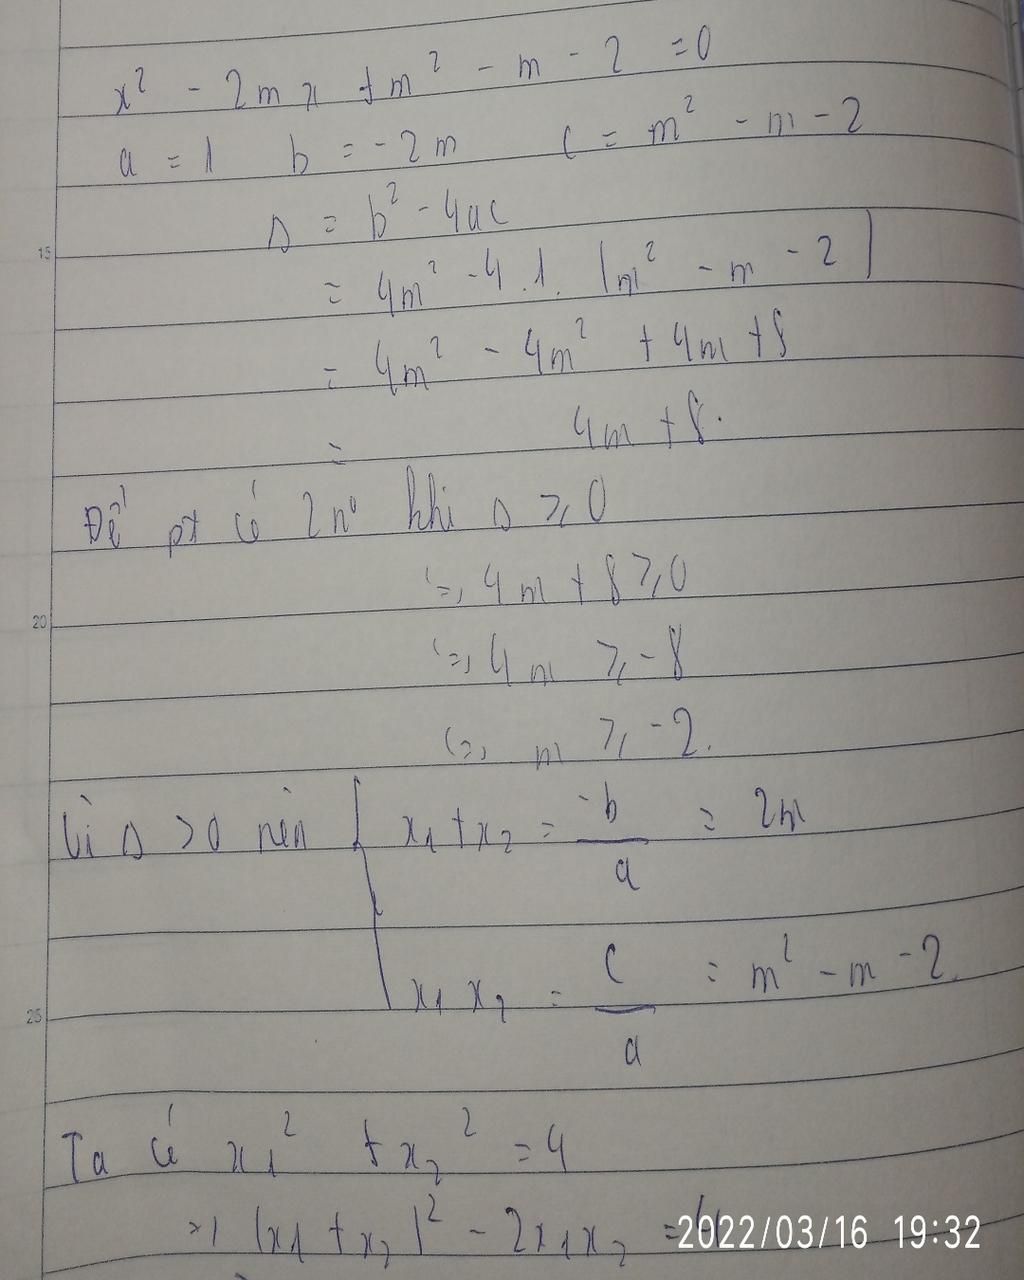 x² - 2mx + m² - m - 2 = 0
a = 1 b = -2m c = m² - m - 2
Δ = b² - 4ac
= 4m² - 4.1.(m² - m - 2)
= 4m² - 4m² + 4m + 8
= 4m + 8.
15
Để pt có 2 n⁰ khi Δ ≥ 0
<=> 4m + 8 ≥ 0
20
<=> 4m ≥ -8
<=> m ≥ -2.
Vì Δ > 0 nên { x₁ + x₂ = -b/a = 2m
x₁x₂ = c/a = m² - m - 2
25
Ta có x₁² + x₂² = 4
=> (x₁ + x₂)² - 2x₁x₂ =
2022/03/16 19:32